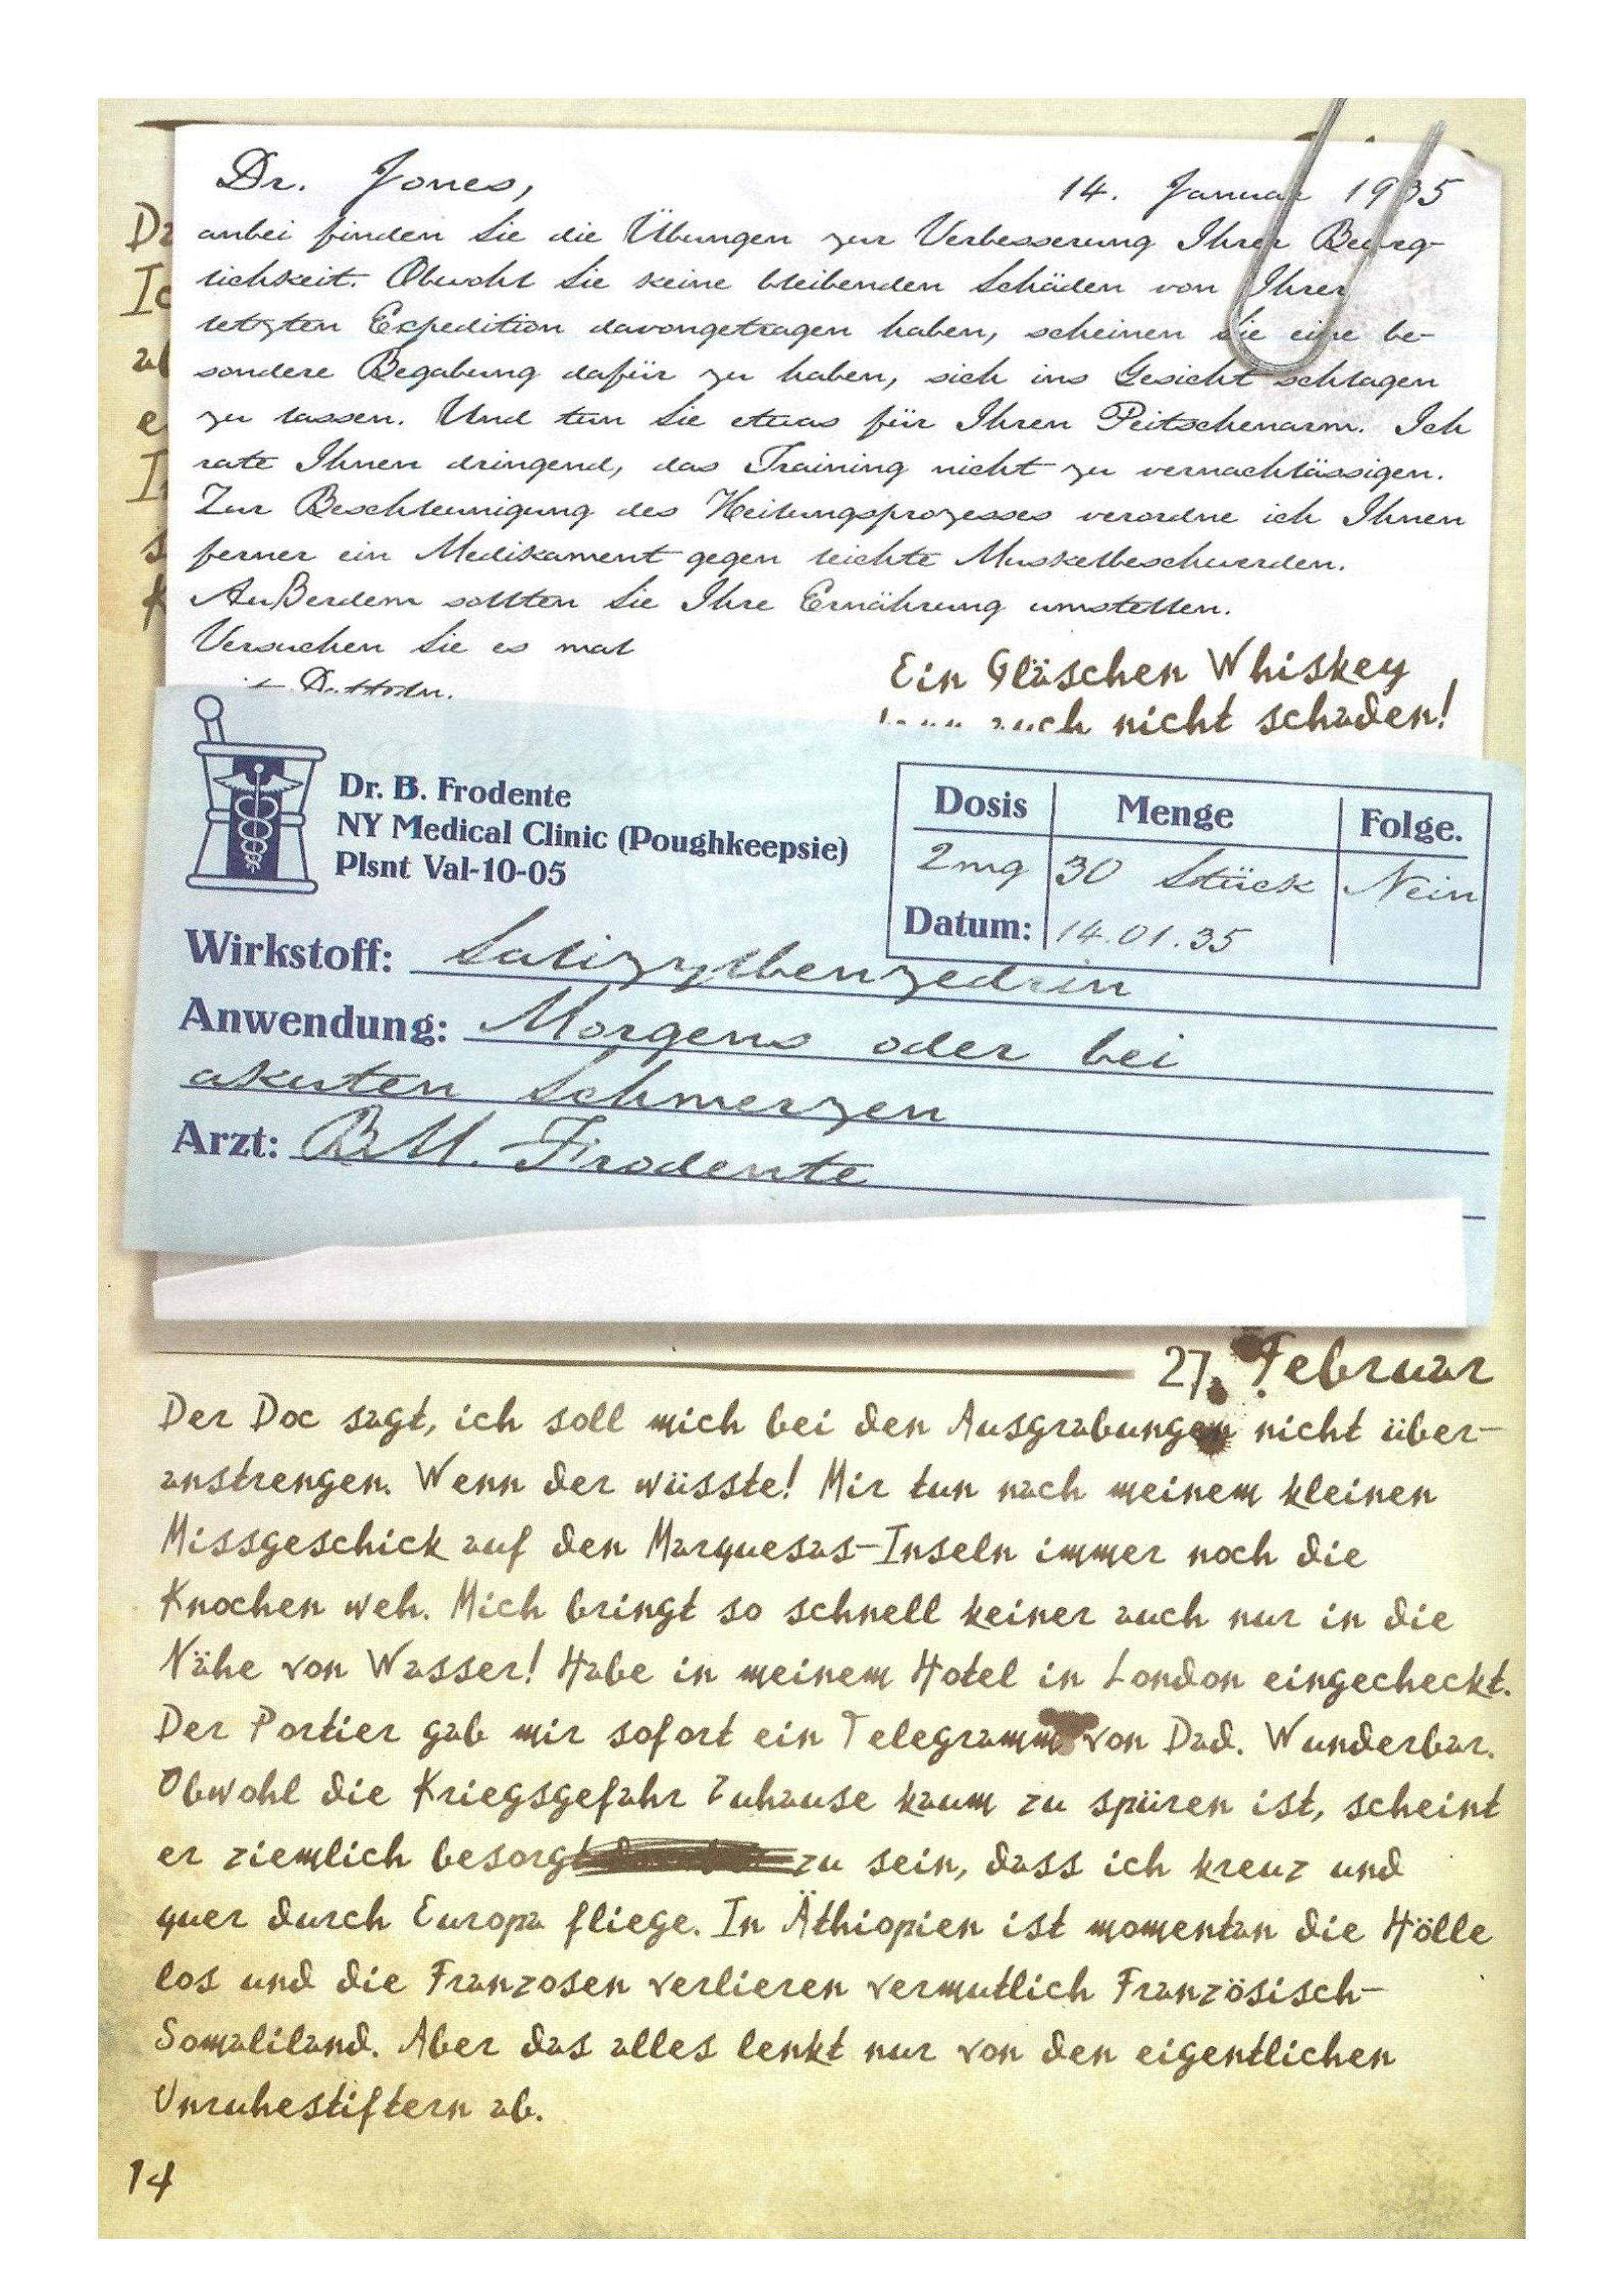 Dr. Jones,
14. Januar 1935
anbei finden Sie die Übungen zur Verbesserung Ihrer Beweg-
lichkeit. Obwohl Sie keine bleibenden Schäden von Ihrer
letzten Expedition davongetragen haben, scheinen Sie eine be-
sondere Begabung dafür zu haben, sich ins Gesicht schlagen
zu lassen. Und tun Sie etwas für Ihren Peitschenarm. Ich
rate Ihnen dringend, das Training nicht zu vernachlässigen.
Zur Beschleunigung des Heilungsprozesses verordne ich Ihnen
ferner ein Medikament gegen leichte Muskelbeschwerden.
Außerdem sollten Sie Ihre Ernährung umstellen.
Versuchen Sie es mal
Ein Gläschen Whiskey
auch nicht schaden!
Dr. B. Frodente
NY Medical Clinic (Poughkeepsie)
Plsnt Val-10-05
Dosis Menge Folge.
2mg 30 Stück Nein
Datum: 14.01.35
Wirkstoff: Salizylbenzedrin
Anwendung: Morgens oder bei
akuten Schmerzen
Arzt: B.M. Frodente
27. Februar
Der Doc sagt, ich soll mich bei den Ausgrabungen nicht über-
anstrengen. Wenn der wüsste! Mir tun nach meinem kleinen
Missgeschick auf den Marquesas-Inseln immer noch die
Knochen weh. Mich bringt so schnell keiner auch nur in die
Nähe von Wasser! Habe in meinem Hotel in London eingecheckt.
Der Portier gab mir sofort ein Telegramm von Dad. Wunderbar.
Obwohl die Kriegsgefahr Zuhause kaum zu spüren ist, scheint
er ziemlich besorgt zu sein, dass ich kreuz und
quer durch Europa fliege. In Äthiopien ist momentan die Hölle
los und die Franzosen verlieren vermutlich Französisch-
Somaliland. Aber das alles lenkt nur von den eigentlichen
Unruhestiftern ab.
14